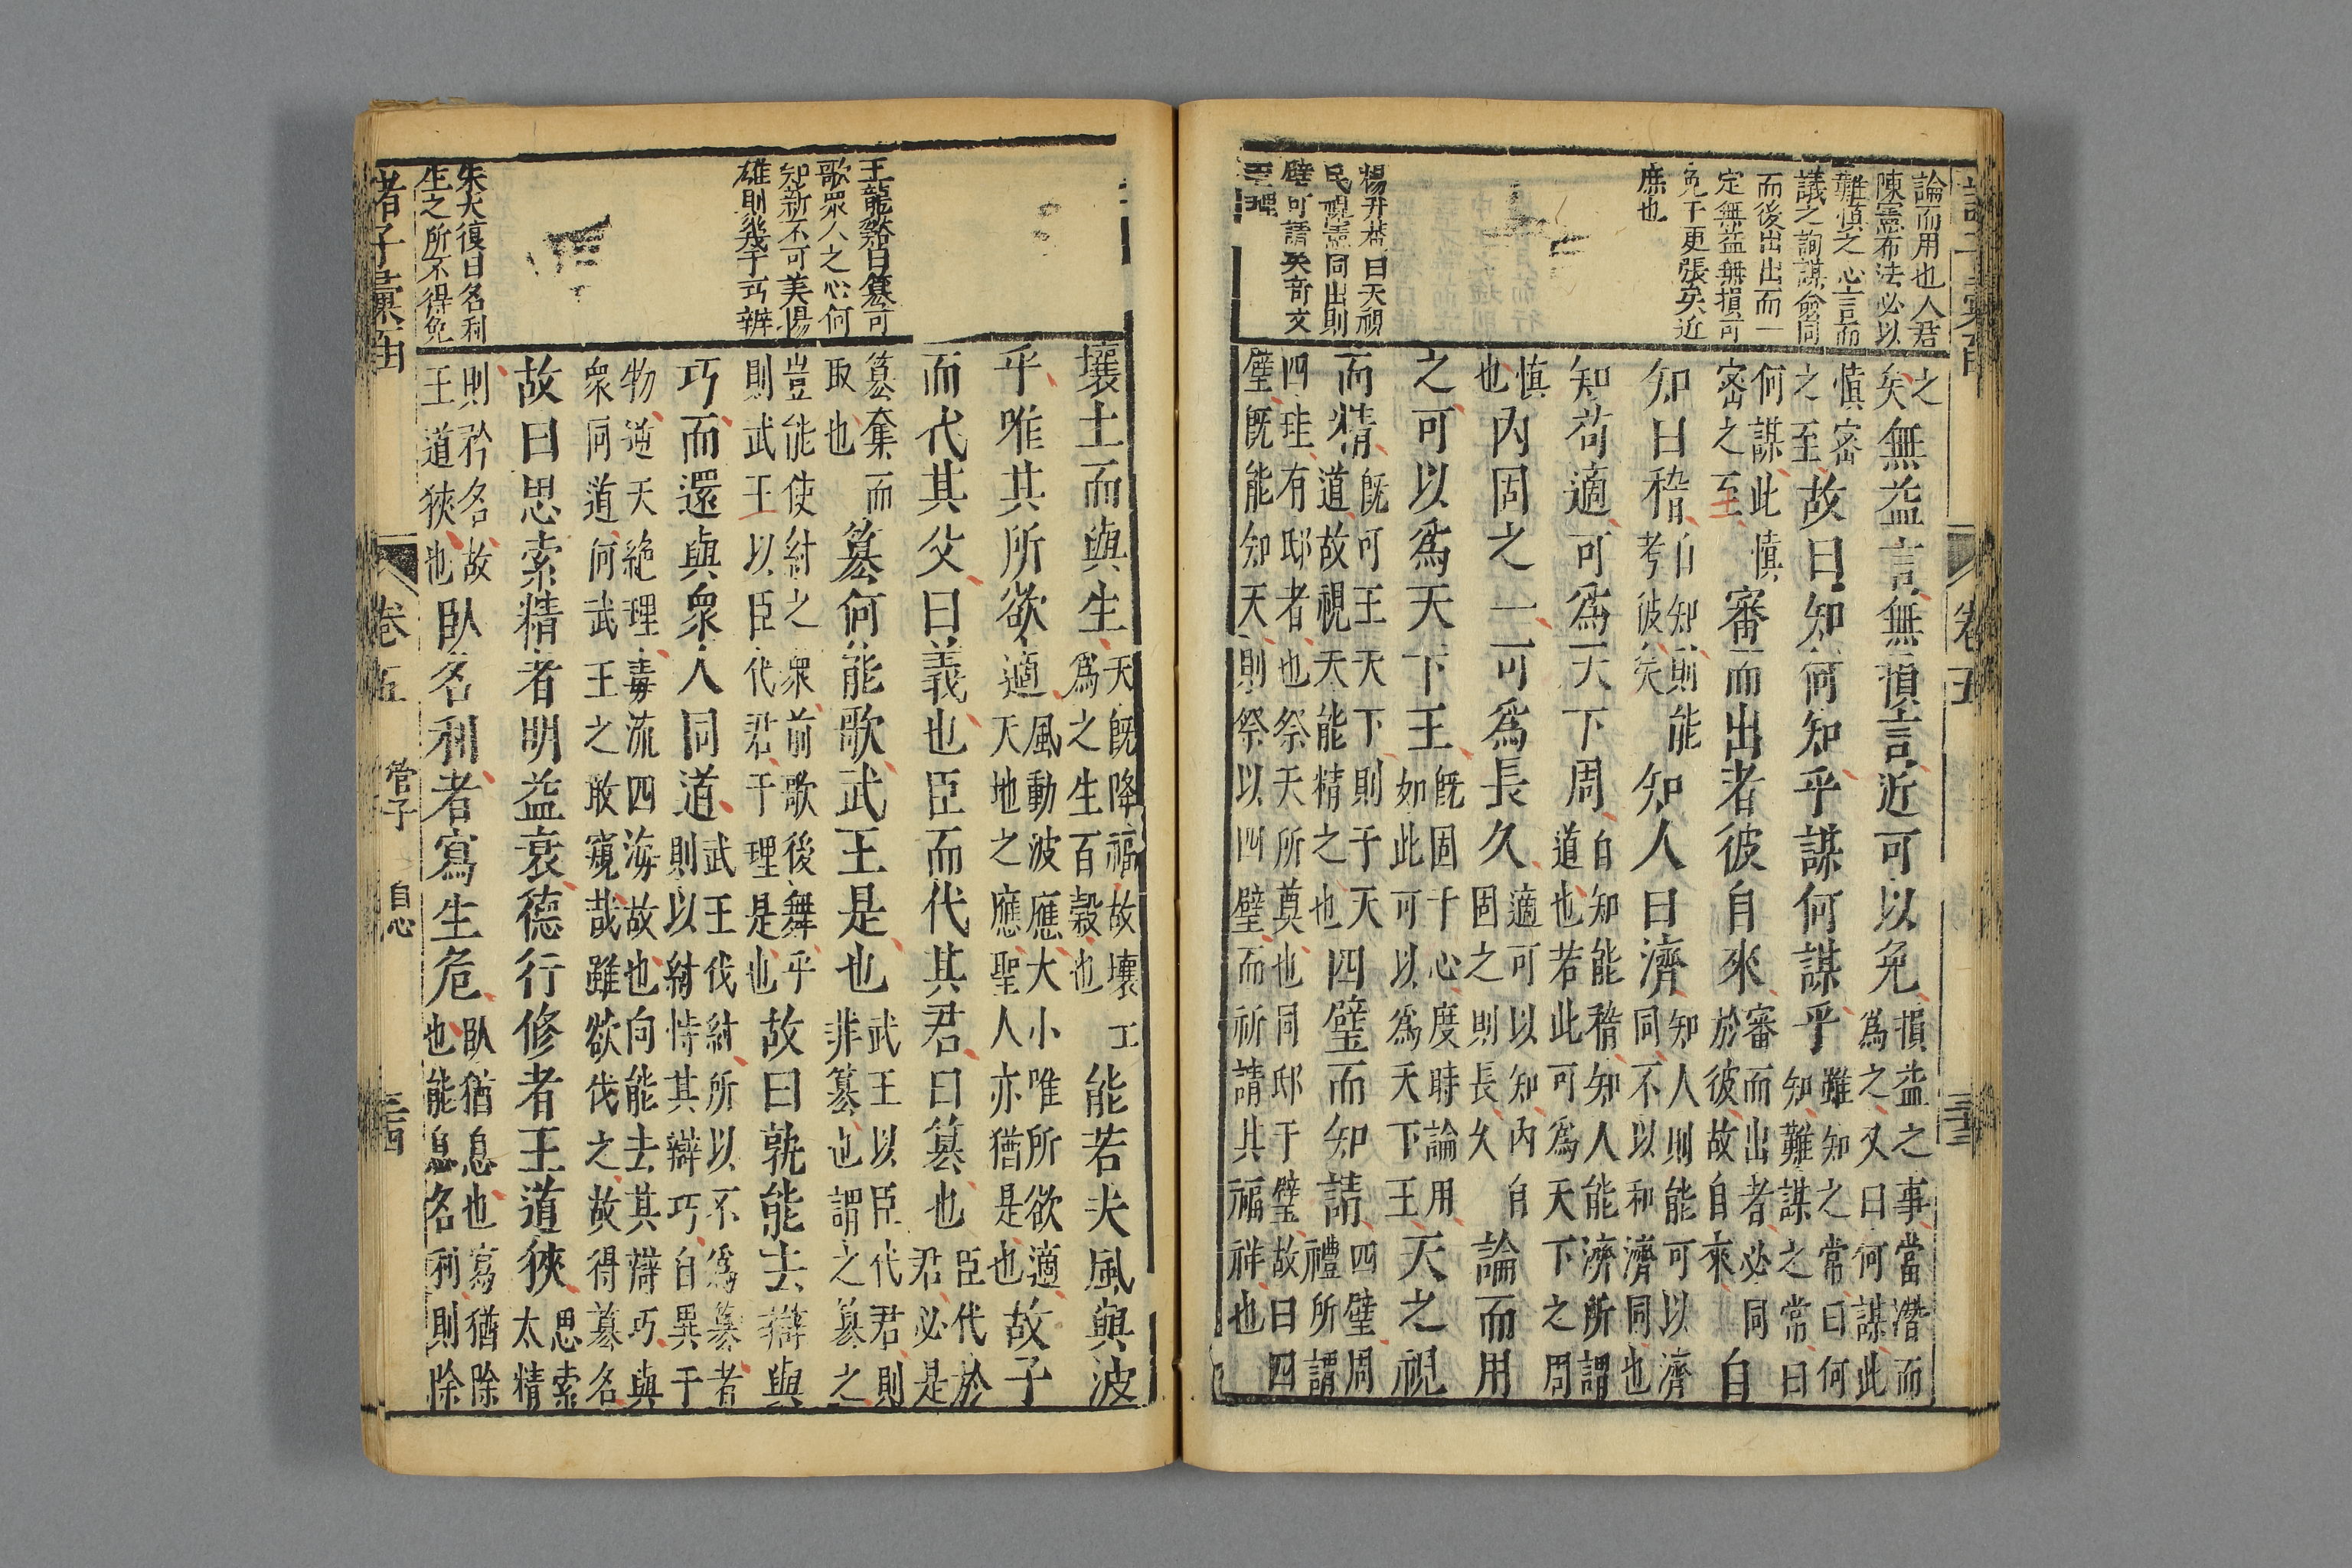 諸子彙函
卷五
三十三
論而用也人君
陳憲布法必以
難慎之心言而
議之詢謀僉同
而後出出而一
定無益無損可
免于更張矣近
庶也
楊升菴曰天視
民視盡同出則
璧可請矣奇文
至理
之矣無益言無損言近可以免損益之事當潛而為之又曰何謀此
慎密之至故曰知何知乎謀何謀乎雖知之常曰何知難謀之常曰
何謀此慎密之至審而出者彼自來審而出者必同於彼故自來自
知曰稽自知則能考彼矣知人曰濟知人則能可以濟同不以和濟同也
知苟適可爲天下周自知能稽知人能濟所謂道也若此可爲天下之周
慎也內固之一可爲長久適可以知內自固之則長久論而用
之可以爲天下王既固于心度時論用如此可以爲天下王天之視
而精既可王天下則于天道故視天能精之也四璧而知請四璧周禮所謂
四珪有邸者也祭天所奠也同邸于璧故曰四璧既能知天則祭以四璧而祈請其福祥也
王龍谿曰篡可
歌眾人之心何
知新不可美湯
雄則幾于巧辨
朱大復曰名利
生之所不得免
壤土而與生天既降福故壤工爲之生百穀也能若夫風與波
乎唯其所欲適風動波應大小唯所欲適天地之應聖人亦猶是也故子
而代其父曰義也臣而代其君曰篡也臣代於君必是
篡奪而取也篡何能歌武王是也武王以臣代君則非篡也謂之篡之
豈能使紂之衆前歌後舞乎則武王以臣代君于理是也故曰孰能去辯與
巧而還與衆人同道武王伐紂所以不爲篡者則以紂恃其辯巧自異于
物逆天絕理毒流四海故也向能去其辯巧與衆同道何武王之敢窺哉雖欲伐之故得篡名
故曰思索精者明益衰德行修者王道狹思索太精
則矜名故王道狹也臥名利者寫生危臥猶息也寫猶除也能息名利則除
諸子彙函
卷五
管子
白心
三十四